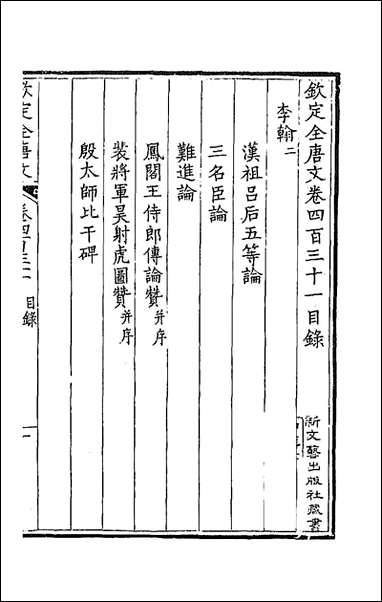 欽定全唐文卷四百三十一目錄
李翰二
漢祖呂后五等論
三名臣論
難進論
鳳閣王侍郎傳論贊并序
裴將軍昊射虎圖贊并序
殷太師比干碑
欽定全唐文
目錄
新文藝出版社藏書